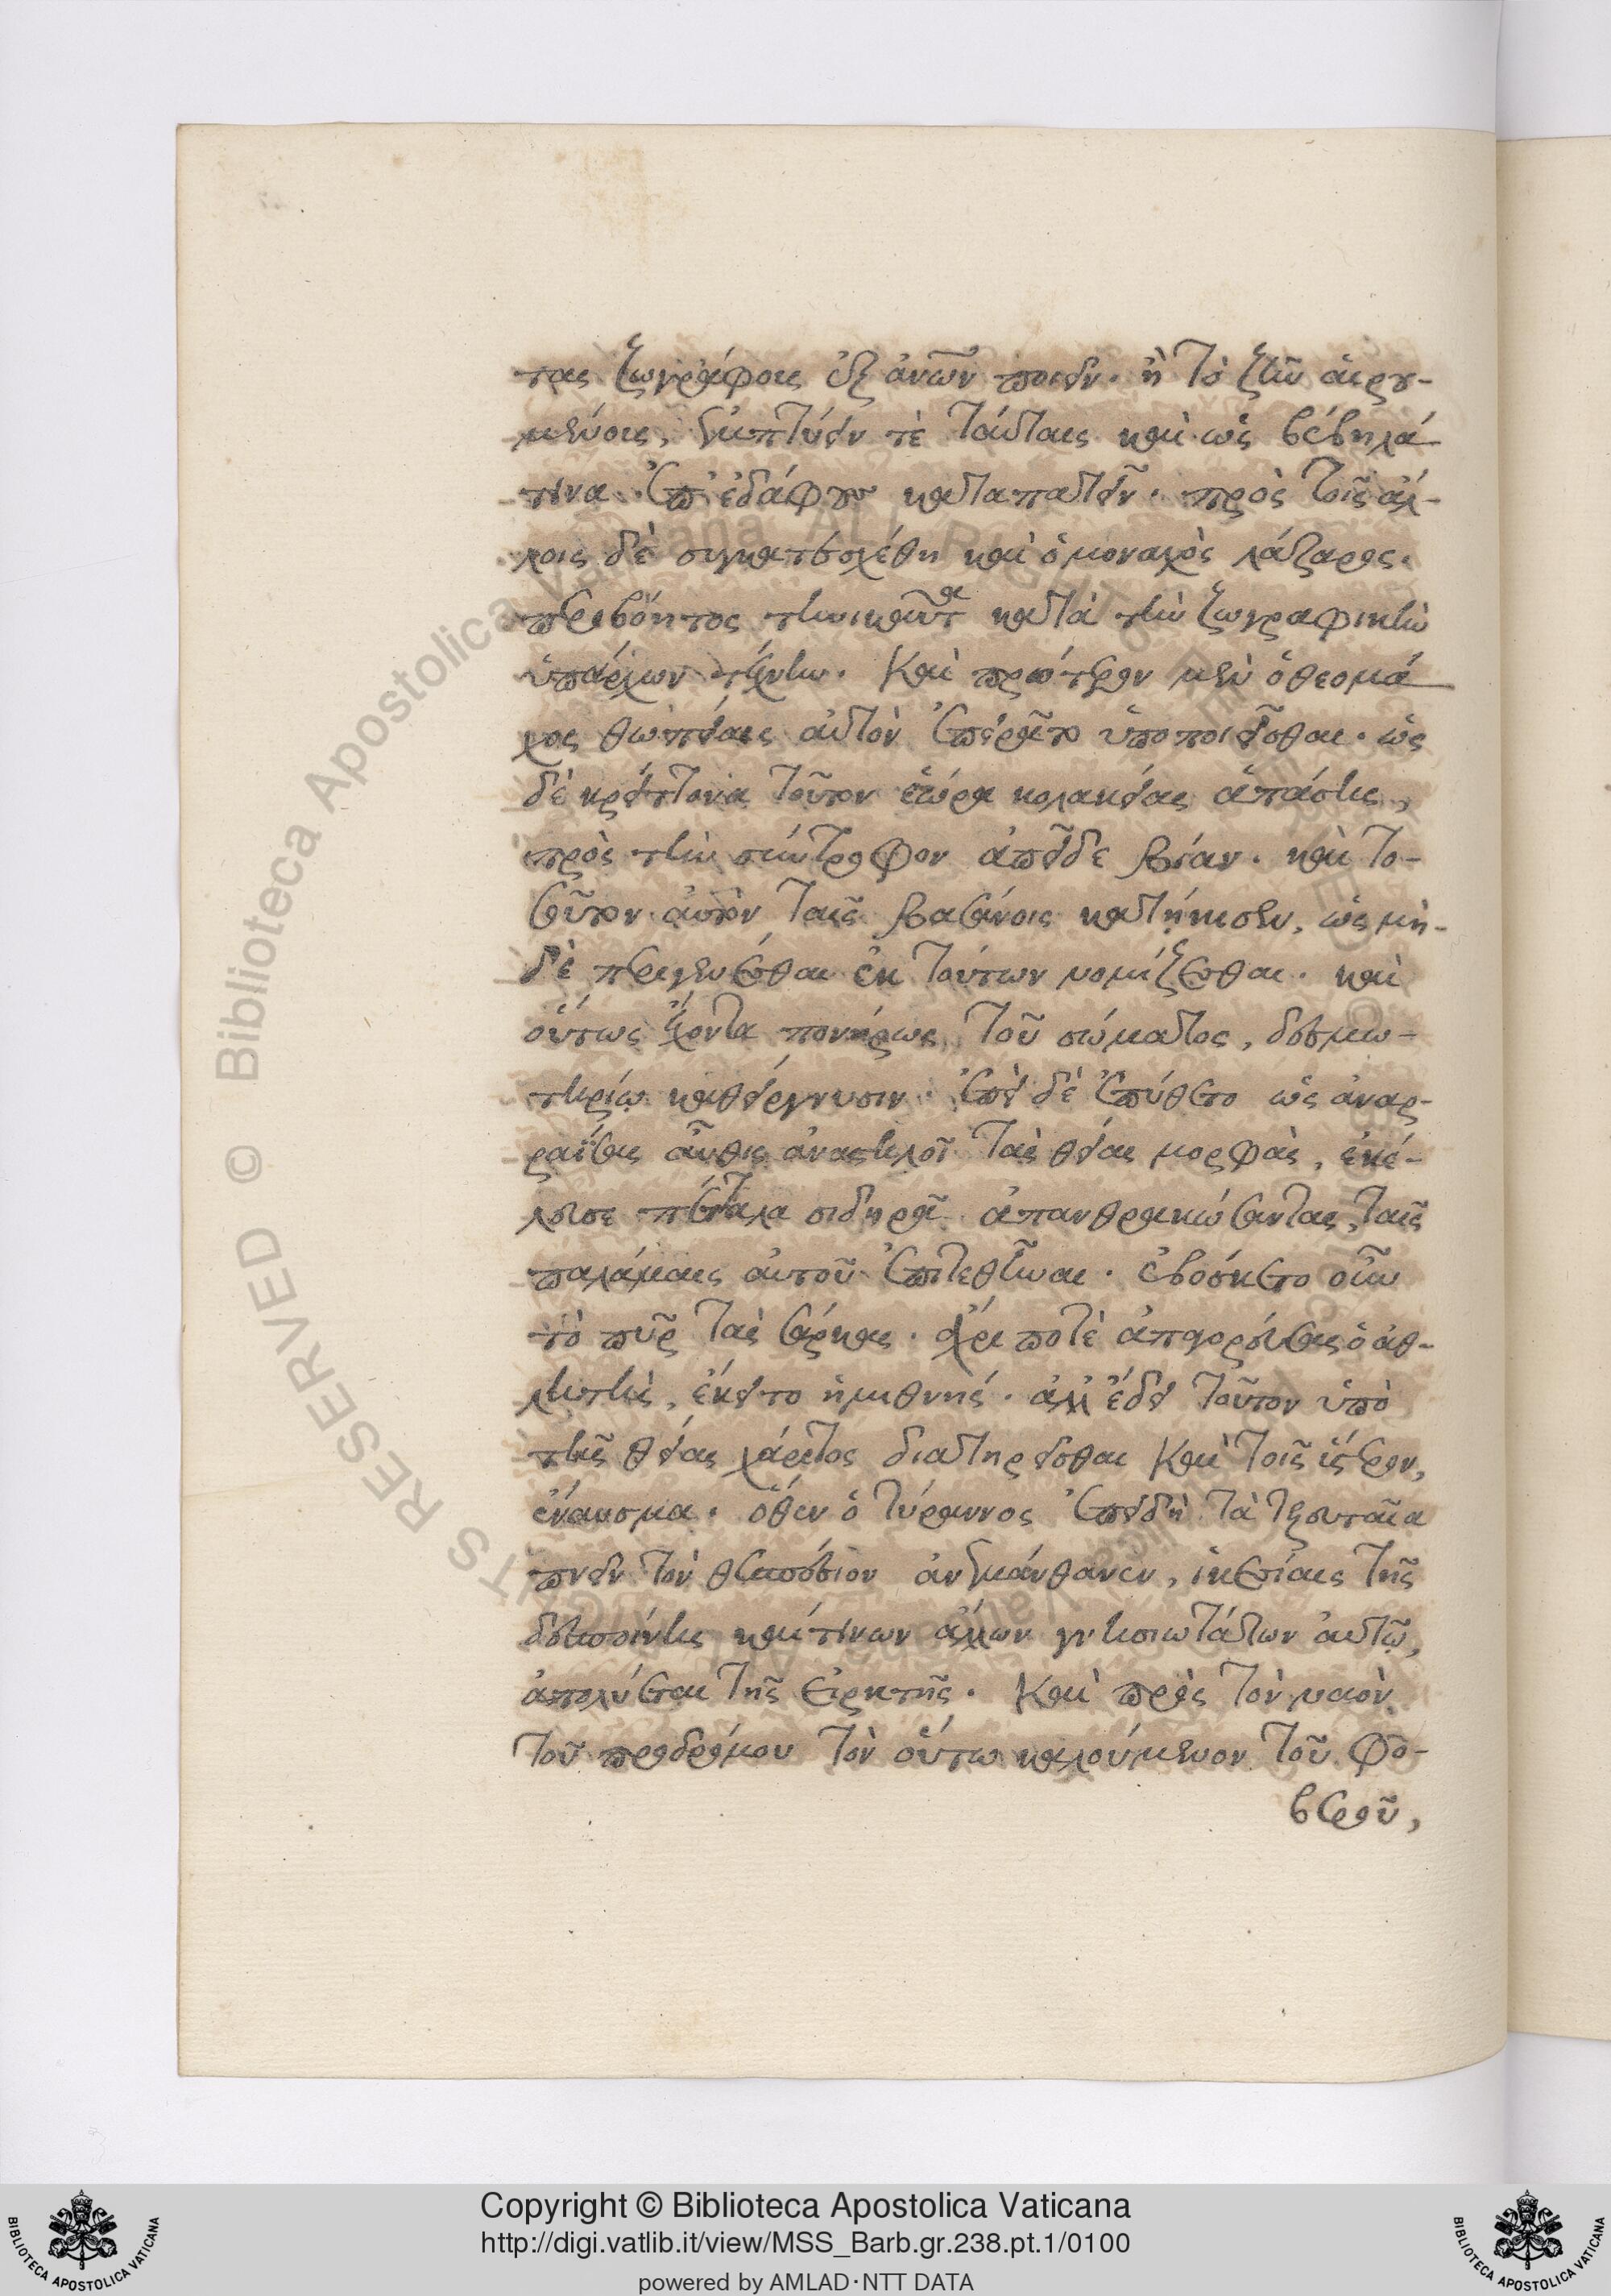 τας ζωγράφους ἐξ ἀνῶν ποιεῖν. ἢ τὸ ζῆν αἱρου-
μένοις, ἐμπτύειν τὲ ταύταις καὶ ὡς βέβηλά
τινα ἐπ' ἐδάφου καταπατεῖν. πρὸς τοῖς ἀλ-
λοις δὲ συγκατεσχέθη καὶ ὁ μοναχὸς λάζαρος.
περιβόητος τηνικαῦτα κατὰ τὴν ζωγραφικὴν
ὑπάρχων τέχνην. Καὶ πρότερον μὲν ὁ θεομά
χος θωπείαις αὐτὸν ἐπειρᾶτο ὑποποιεῖσθαι. ὡς
δὲ κρείττονα τοῦτον ἑώρα κολακείας ἁπάσης,
πρὸς τὴν σύντροφον ἀπεῖδε βίαν. καὶ το-
σοῦτον αὐτὸν ταῖς βασάνοις κατῄκισεν, ὡς μη-
δὲ περιγενέσθαι ἐκ τούτων νομίζεσθαι. καὶ
οὕτως ἔχοντα πονήρως τοῦ σώματος, δεσμω-
τηρίῳ καθείργνυσιν. ἐπεὶ δὲ ἐπύθετο ὡς ἀναρ-
ραΐσας αὖθις ἀναστηλοῖ τὰς θείας μορφὰς, ἐκέ-
λευσε πέταλα σιδηρᾶ ἀπανθρακώσαντας, ταῖς
παλάμαις αὐτοῦ ἐπιτεθῆναι. ἐβόσκετο οὖν
τὸ πῦρ τὰς σάρκας. ἄχρι ποτὲ ἀπαγορεύσας ὁ ἀθ-
λητὴς, ἔκειτο ἡμιθνής. ἀλλ' ἔδει τοῦτον ὑπὸ
τῆς θείας χάριτος διατηρεῖσθαι καὶ τοῖς ὕστερον,
ἔναυσμα. ὅθεν ὁ τύραννος ἐπειδὴ τὰ τελευταῖα
πνεῖν τὸν θεσπέσιον ἀνεμάνθανεν, ἱκεσίαις τῆς
δεσποίνης καί τινων ἄλλων γνησιωτάτων αὐτῷ,
ἀπολύεται τῆς εἱρκτῆς. Καὶ πρὸς τὸν ναὸν
τοῦ προδρόμου τὸν οὕτω καλούμενον τοῦ φο-
βεροῦ,
Copyright © Biblioteca Apostolica Vaticana
http://digi.vatlib.it/view/MSS_Barb.gr.238.pt.1/0100
powered by AMLAD·NTT DATA